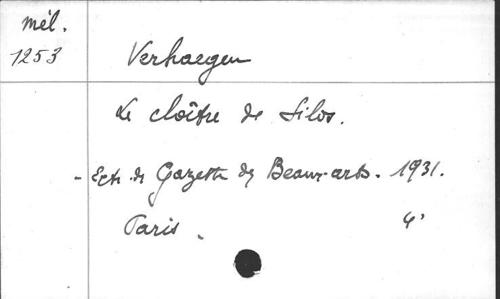 mél.
1253
Verhaegen
Le cloître de Silos.
- Extr. de Gazette des Beaux-arts. 1931.
Paris. 4°